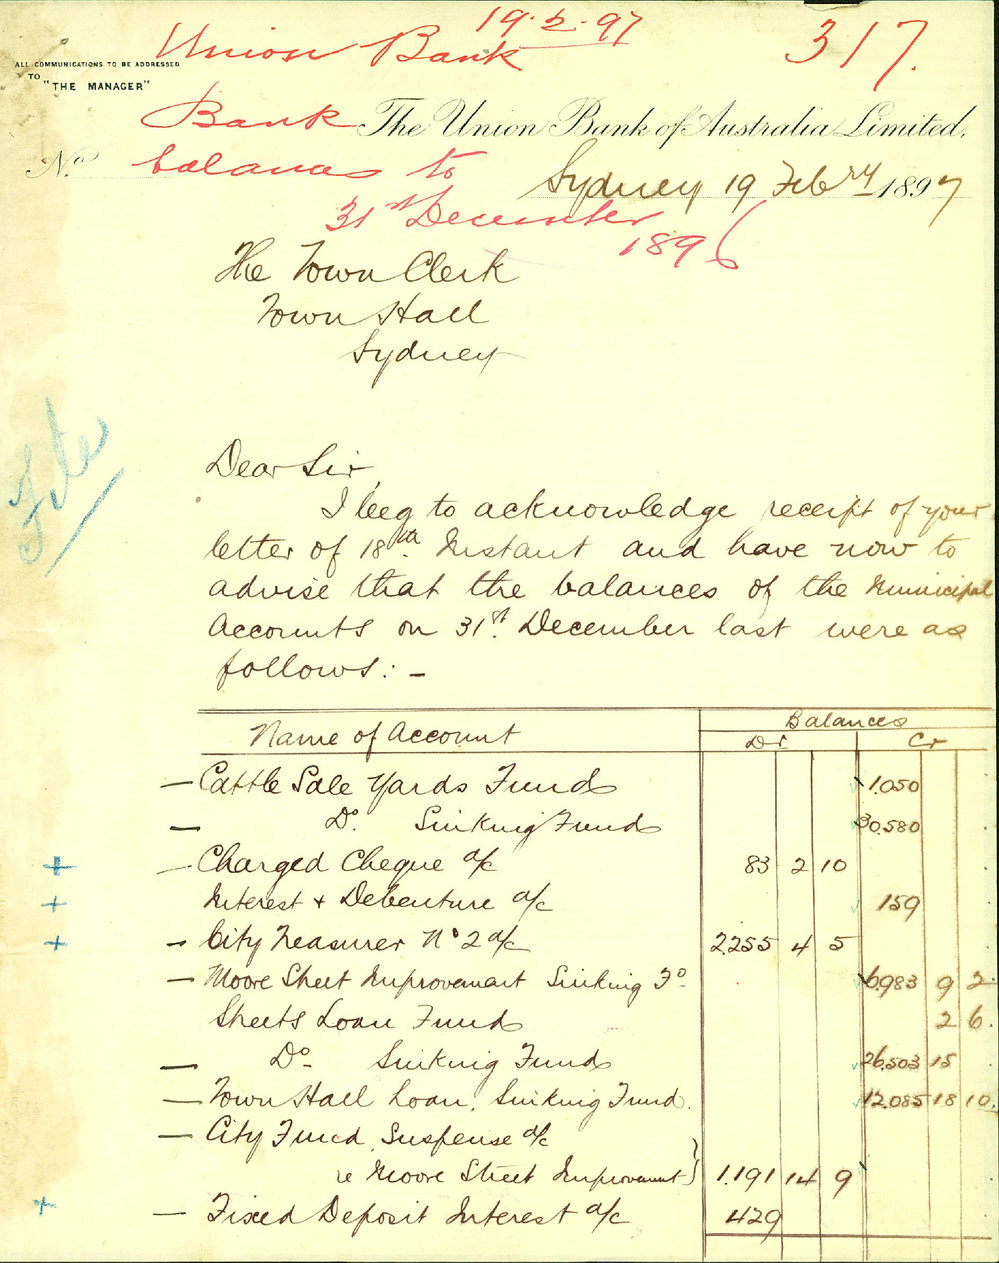 19.2.97
Union Bank
317.
ALL COMMUNICATIONS TO BE ADDRESSED
TO
"THE MANAGER"
Bank
The Union Bank of Australia Limited,
No.
balances to
Sydney 19 Febry 1897
31st December
1896
The Town Clerk
Town Hall
Sydney
File
Dear Sir,
I beg to acknowledge receipt of your
letter of 18th. Instant and have now to
advise that the balances of the Municipal
Accounts on 31st. December last were as
follows: -
Name of Account Balances
Dr Cr
— Cattle Sale Yards Fund 1.050
— Do. Sinking Fund 30.580
+ — Charged Cheque a/c 83 2 10
+ Interest + Debenture a/c 159
+ - City Treasurer No 2 a/c 2.255 4 5
— Moore Street Improvement Sinking Fo 6.983 9 2.
Streets Loan Fund 2 6.
— Do- Sinking Fund 26.503 15
— Town Hall Loan, Sinking Fund. 12.085 18 10.
— City Fund Suspense a/c
re Moore Street Improvemt } 1.191 14 9
+ — Fixed Deposit Interest a/c 429